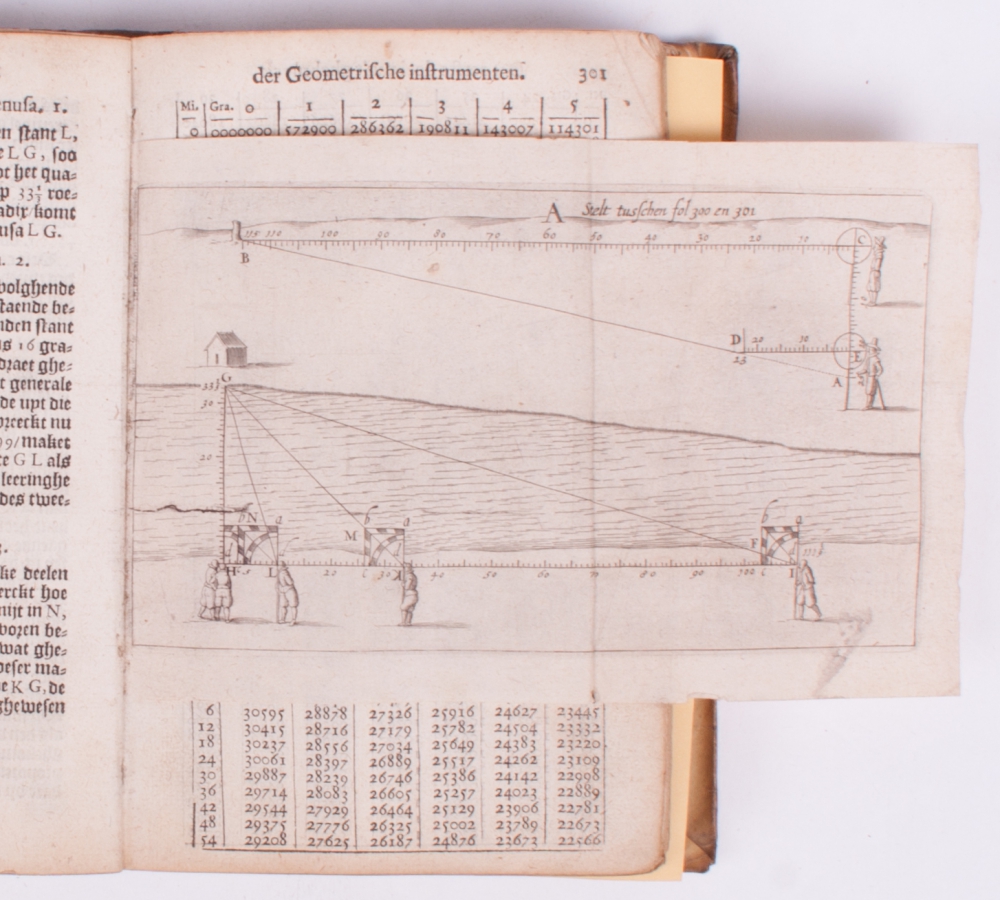 enusa. 1.
n stant L,
e L G, soo
ot het qua⸗
p 33⅓ roe⸗
adix/komt
usa L G.
. 2.
volghende
staende be⸗
nden stant
s 16 gra⸗
dzaet ghe⸗
t generale
de upt die
ozeeckt nu
99/maket
te G L als
leeringhe
des twee⸗
ke deelen
erckt hoe
nijt in N,
vozen be⸗
wat ghe⸗
deser ma⸗
e K G, de
ghewesen
der Geometrische instrumenten. 301
Mi. Gra. 0 1 2 3 4 5
0 0000000 572900 286362 190811 143007 114301
A Stelt tusschen fol 300 en 301
115 110 100 90 80 70 60 50 40 30 20 10 C
B
D 20 10
25 E
A
G
33⅓
30
20
b N a b a b a
M F
H L 20 30 40 50 60 70 80 90 100 c I
6 30595 28878 27326 25916 24627 23445
12 30415 28716 27179 25782 24504 23332
18 30237 28556 27034 25649 24383 23220
24 30061 28397 26889 25517 24262 23109
30 29887 28239 26746 25386 24142 22998
36 29714 28083 26605 25257 24023 22889
42 29544 27929 26464 25129 23906 22781
48 29375 27776 26325 25002 23789 22673
54 29208 27625 26187 24876 23673 22566